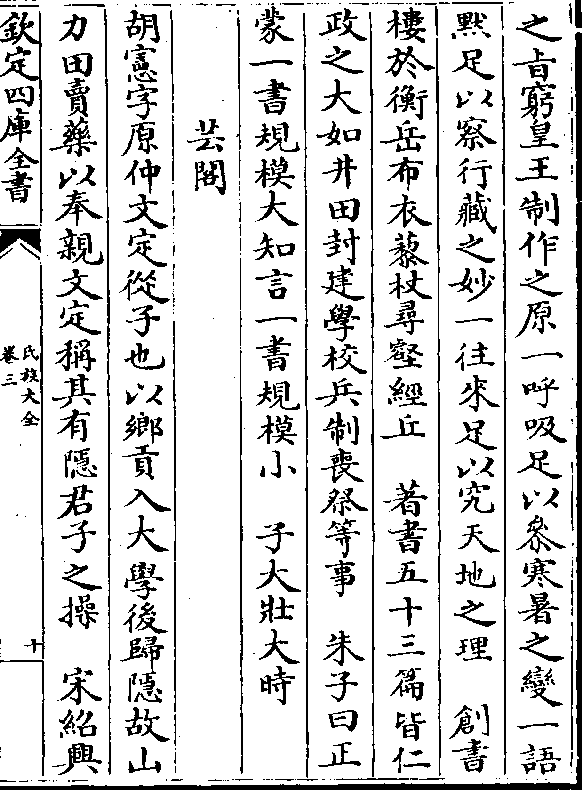 之㫖窮皇王制作之原一呼吸足以叅寒暑之變一語
黙足以察行藏之妙一徃來足以究天地之理　創書
樓於衡岳布衣藜杖尋壑經丘　著書五十三篇皆仁
政之大如井田封建學校兵制喪祭等事　朱子曰正
蒙一書規模大知言一書規模小　子大壯大時
芸閣
胡憲字原仲文定從子也以鄉貢入大學後歸隱故山
力田賣藥以奉親文定稱其有隱君子之操　宋紹興
欽定四庫全書
氏族大全
卷三
十